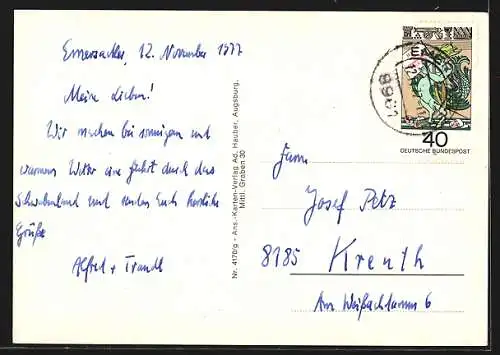 Emersacker, 12. November 1977
Meine Lieben!
Wir machen bei sonnigem und
warmem Wetter eine Fahrt durch das
Schwabenland und senden Euch herzliche
Grüße
Alfred + Traudl
Nr. 4170/g - Ans.-Karten-Verlag Ad. Hauber, Augsburg,
Mittl. Graben 30
8901
40
DEUTSCHE BUNDESPOST
Fam.
Josef Petz
8185 Kreuth
Am Weißachdamm 6